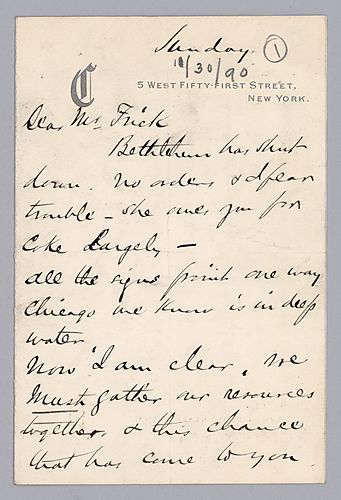 Sunday. 1
11/30/90
C
5 WEST FIFTY-FIRST STREET,
NEW YORK.
Dear Mr Frick
Bethlehem has shut
down. no orders & I fear
trouble — she owes you for
Coke largely —
all the signs point one way
Chicago we know is in deep
water
Now I am clear, we
Must gather our resources
together, & this chance
that has come to you